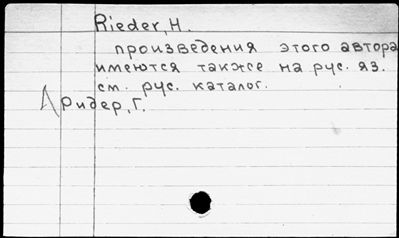 Rieder, H.
произведения этого автора
имеются также на рус. яз.
см. рус. каталог.
Ридер, Г.